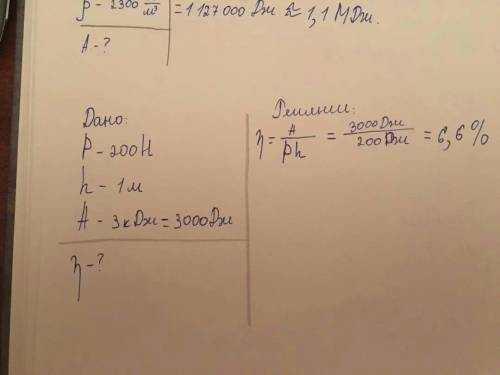 ρ - 2300 —/м³ = 1 127 000 Дж ≈ 1,1 МДж.
A - ?
Дано:
P - 200Н
h - 1м
A - 3кДж = 3000Дж
η - ?
Решение:
η = A/Ph = 3000Дж/200Дж = 6,6%